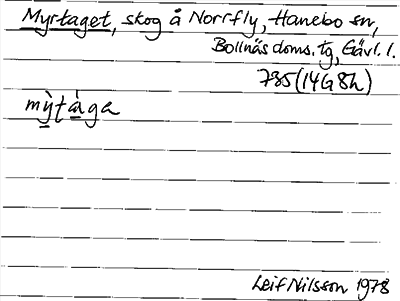 Myrtaget, skog å Norrfly, Hanebo sn,
Bollnäs doms. tg, Gävl. l.
735 (14G 8h)
mỳtága
Leif Nilsson 1978